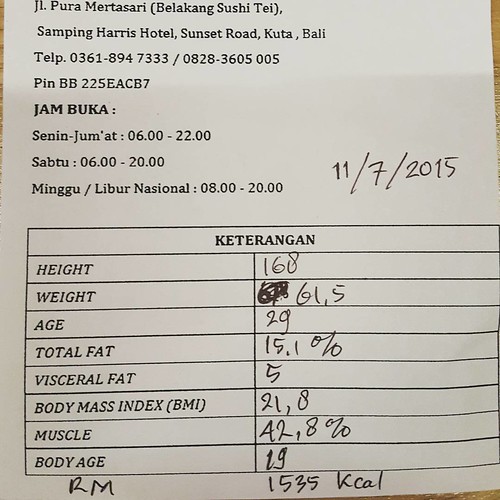 Jl. Pura Mertasari (Belakang Sushi Tei),
Samping Harris Hotel, Sunset Road, Kuta , Bali
Telp. 0361-894 7333 / 0828-3605 005
Pin BB 225EACB7
JAM BUKA :
Senin-Jum'at : 06.00 - 22.00
Sabtu : 06.00 - 20.00
Minggu / Libur Nasional : 08.00 - 20.00
11/7/2015
KETERANGAN
HEIGHT 168
WEIGHT 61,5
AGE 29
TOTAL FAT 15.1 %
VISCERAL FAT 5
BODY MASS INDEX (BMI) 21,8
MUSCLE 42,8%
BODY AGE 19
RM 1535 Kcal